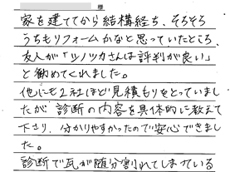 様
家を建ててから結構経ち、そろそろ
うちもリフォームかなと思っていたところ、
友人が「ツノツカさんは評判が良い」
と勧めてくれました。
他にも2社ほど見積もりをとっていまし
たが診断の内容を具体的に教えて
下さり、分かりやすかったので安心できまし
た。
診断で瓦が随分割れてしまっている